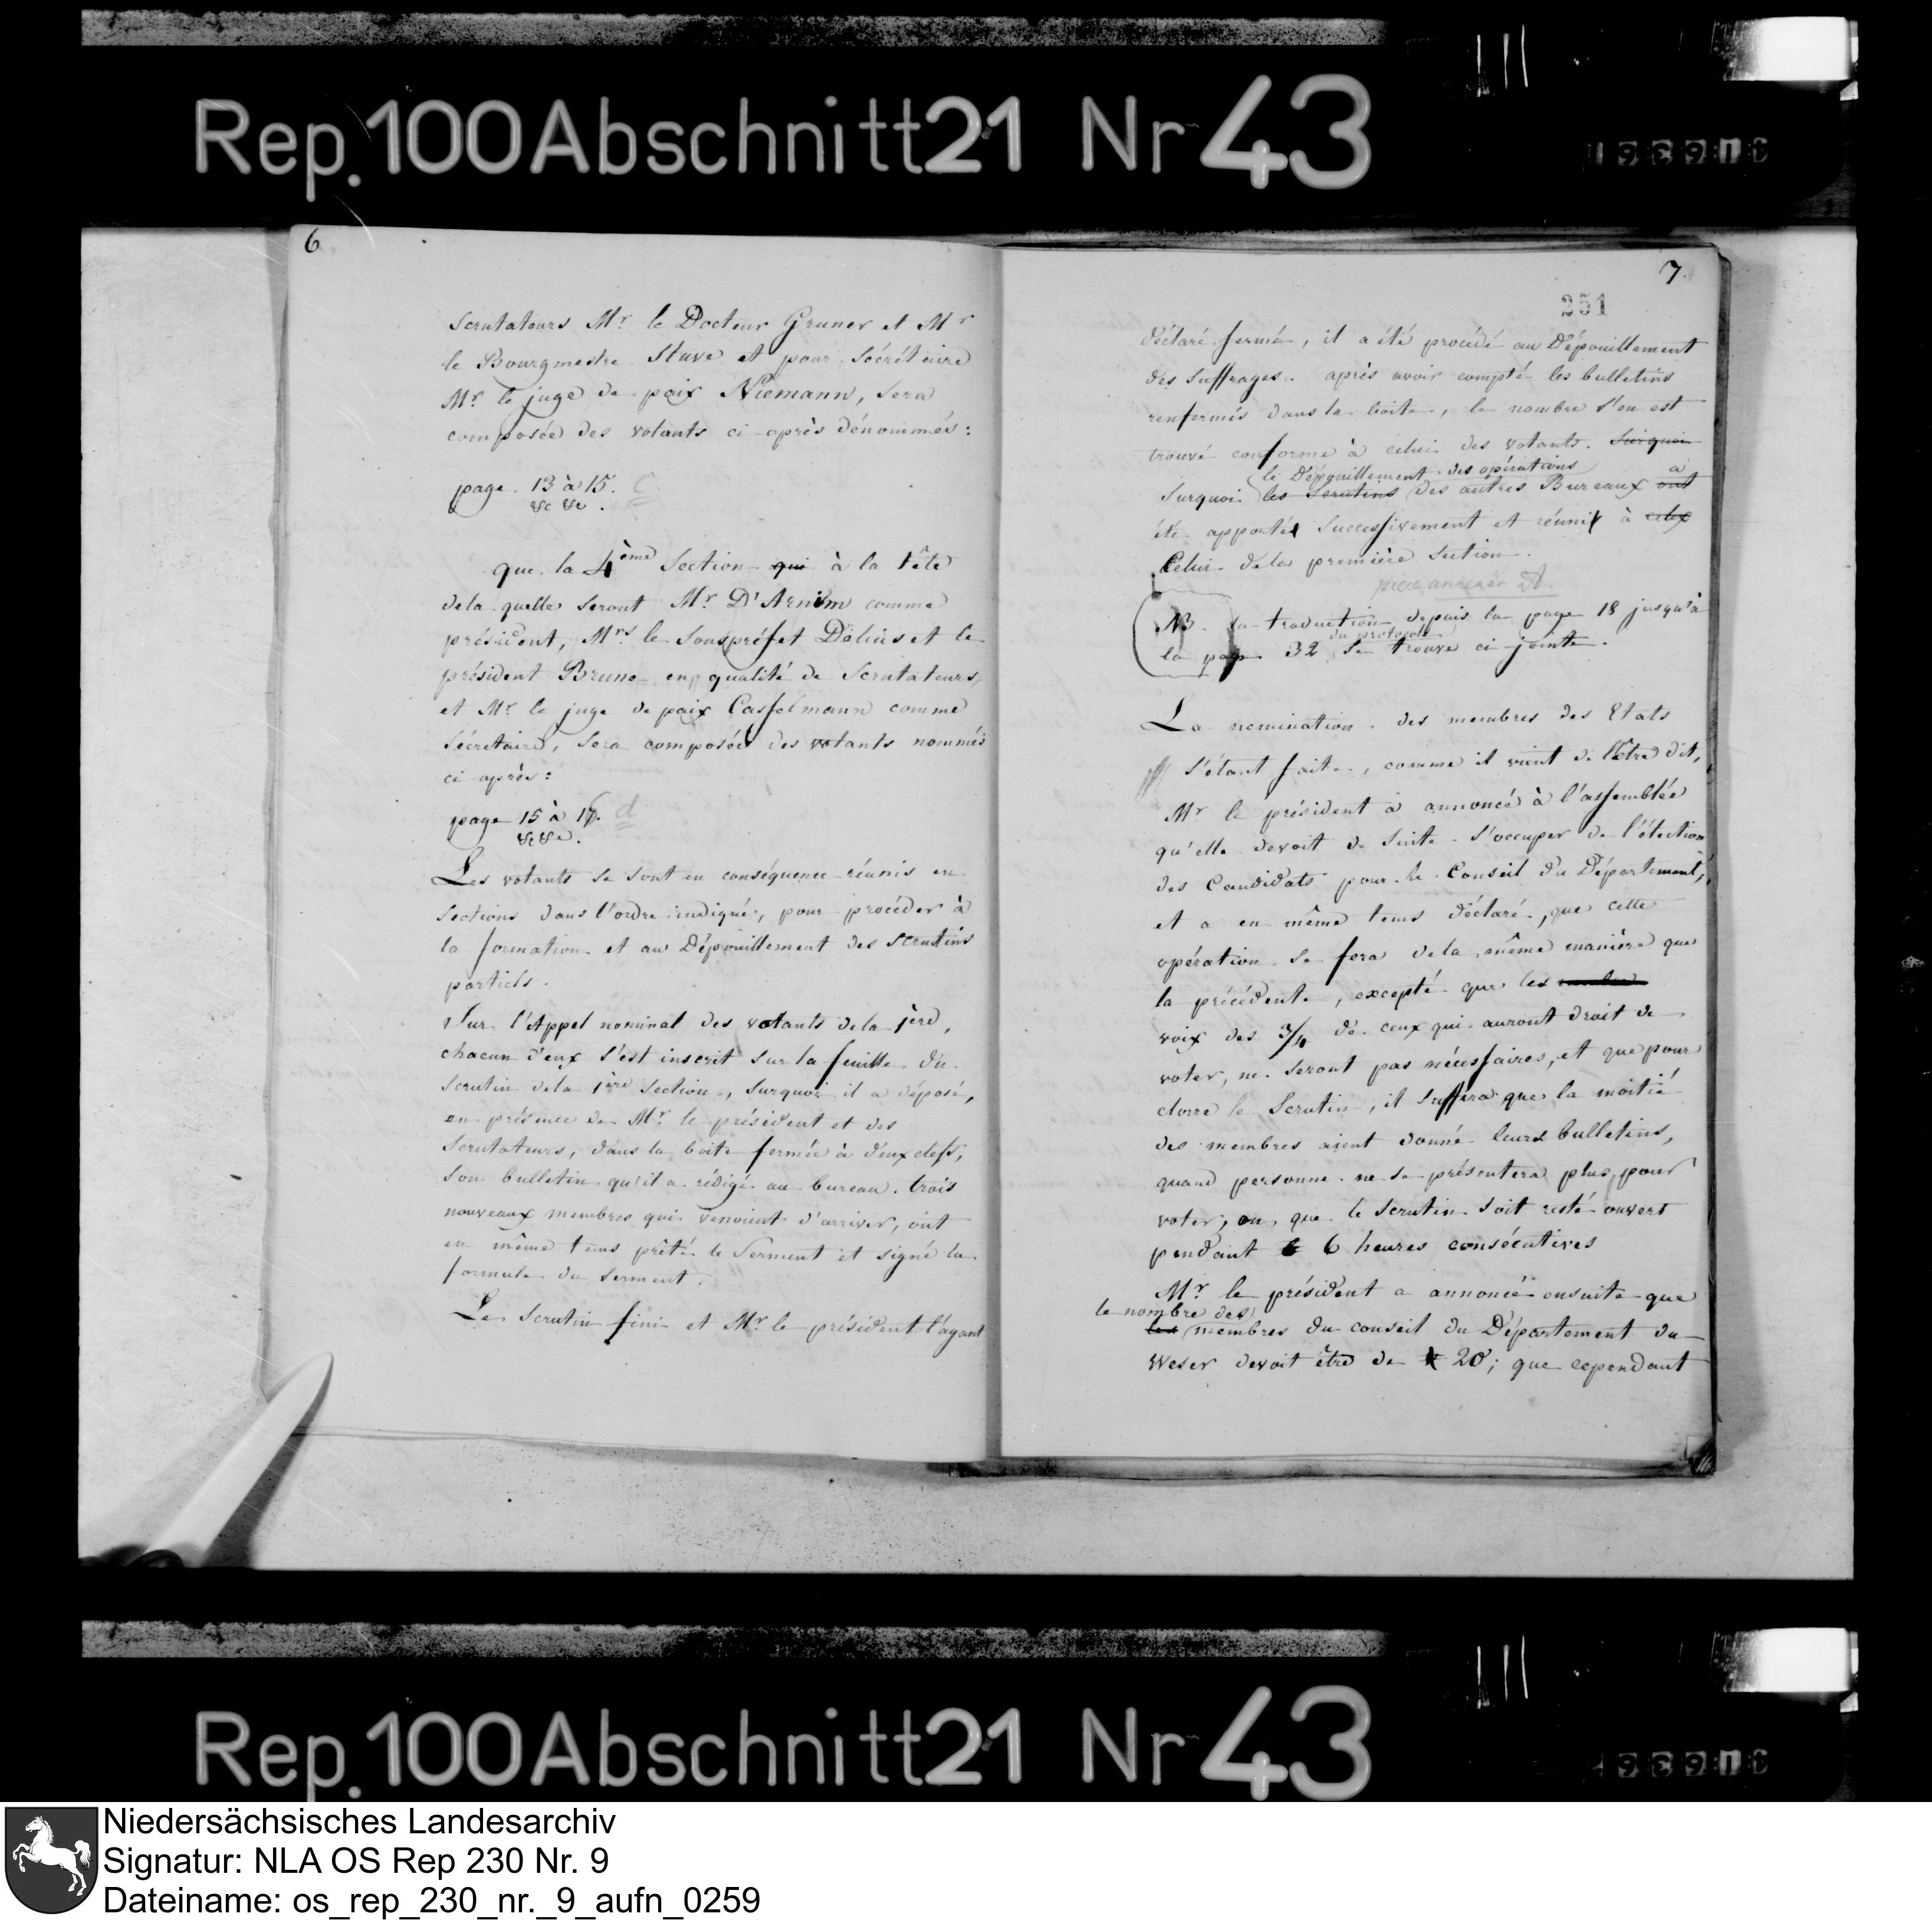 Rep. 100 Abschnitt 21 Nr 43
6
Scrutateurs Mr le Docteur Gruner et Mr
le Bourgmestre Stuve et pour Sécrétaire
Mr le juge de paix Niemann, sera
composée des votants ci-après dénommés:
page 13 à 15. C
&c &c.
que la 4ème Section qui à la tête
dela quelle seront Mr D'Arnim comme
président, Mrs le Souspréfet Délius et le
président Bruno en qualité de Scrutateurs,
et Mr le juge de paix Casselmann comme
Sécretaire, sera composée des votants nommés
ci après:
page 15 à 17. d
&c &c.
Les votants se sont en conséquence réunis en
Sections dans l'ordre indiqué, pour procéder à
la formation et au Dépouillement des Scrutins
partiels.
Sur l'Appel nominal des votants dela 1ère,
chacun d'eux s'est inscrit sur la feuille du
Scrutin dela 1ère Section, surquoi il a déposé,
en présence de Mr le président et des
Scrutateurs, dans la boite fermée à deux clefs,
Son bulletin qu'il a rédigé au bureau. trois
nouveaux membres qui venoient d'arriver, ont
en même tems prêté le Serment et signé la
formule du serment.
Le Scrutin fini et Mr le président l'ayant
7.
251
déclaré fermé, il a été procédé au Dépouillement
des Suffrages. après avoir compté les bulletins
renfermés dans la boite, le nombre s'en est
trouvé conforme à celui des votants. Surquoi
le Dépouillement des opérations a
Surquoi les Scrutins des autres Bureaux ont
été apporté successivement et réuni à celux
Celui dela première Section.
pièce annexée A.
NB. la traduction depuis la page 18 jusqu'à
du protocole
la page 32 se trouve ci jointe.
La nomination des membres des Etats
s'étant faite, comme il vient de l'être dit,
Mr le président a annoncé à l'assemblée
qu'elle devoit de suite s'occuper de l'élection
des Candidats pour le Conseil du Département,
et a en même tems déclaré, que cette
opération se fera dela même manière que
la précédente, excepté que les
voix des 3/4 de ceux qui auront droit de
voter, ne seront pas nécessaires, et que pour
clorre le Scrutin, il suffira que la moitié
des membres aient donné leurs bulletins,
quand personne ne se présentera plus pour
voter, ou que le Scrutin soit resté ouvert
pendant 6 heures consécutives
Mr le président a annoncé ensuite que
le nombre des
les membres du conseil du Département du
Weser devoit être de 20; que cependant
Rep. 100 Abschnitt 21 Nr 43
Niedersächsisches Landesarchiv
Signatur: NLA OS Rep 230 Nr. 9
Dateiname: os_rep_230_nr._9_aufn_0259